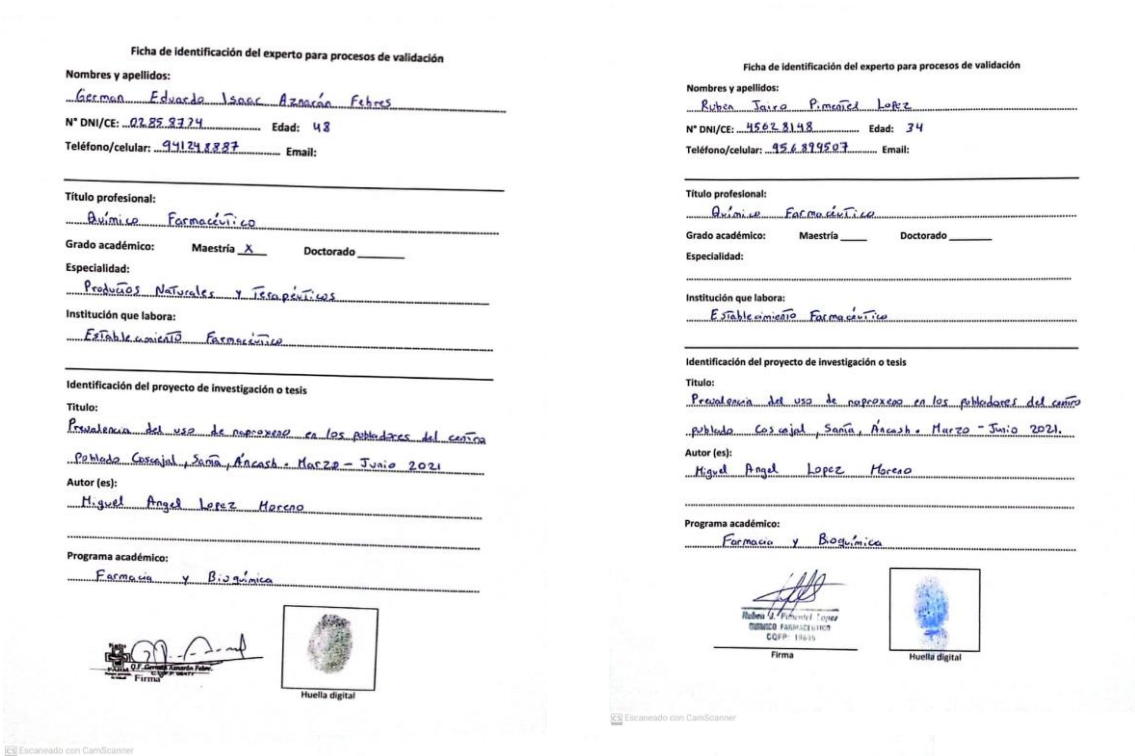 Ficha de identificación del experto para procesos de validación
Nombres y apellidos:
German Eduardo Isaac Aznarán Febres
N° DNI/CE: 02858774 Edad: 48
Teléfono/celular: 941248887 Email:
Título profesional:
Químico Farmacéutico
Grado académico: Maestría X Doctorado
Especialidad:
Productos Naturales y Terapéuticos
Institución que labora:
Establecimiento Farmacéutico
Identificación del proyecto de investigación o tesis
Titulo:
Prevalencia del uso de naproxeno en los pobladores del centro
Poblado Coscajal, Santa, Áncash. Marzo - Junio 2021
Autor (es):
Miguel Angel Lopez Moreno
Programa académico:
Farmacia y Bioquímica
Firma
Huella digital
CS Escaneado con CamScanner
Ficha de identificación del experto para procesos de validación
Nombres y apellidos:
Ruben Jairo Pimentel Lopez
N° DNI/CE: 45628148 Edad: 34
Teléfono/celular: 956899507 Email:
Título profesional:
Químico Farmacéutico
Grado académico: Maestría Doctorado
Especialidad:
Institución que labora:
Establecimiento Farmacéutico
Identificación del proyecto de investigación o tesis
Titulo:
Prevalencia del uso de naproxeno en los pobladores del centro
poblado Coscajal, Santa, Áncash. Marzo - Junio 2021.
Autor (es):
Miguel Angel Lopez Moreno
Programa académico:
Farmacia y Bioquímica
Ruben J. Pimentel Lopez
QUIMICO FARMACEUTICO
CQFP
Firma
Huella digital
CS Escaneado con CamScanner